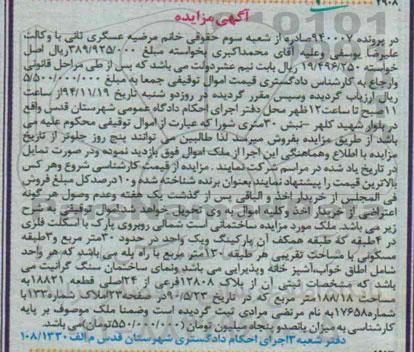 ۴۹۰۸
آگهی مزایده
در پرونده ۹۴۰۰۰۷صادره از شعبه سوم حقوقی خانم مرضیه عسگری تاتی با وکالت
علیرضا یوسفی وعلیه آقای محمداکبری بخواسته مبلغ ۳۸۹/۹۲۵/۰۰۰ریال اصل
خواسته ۱۹/۴۹۶/۲۵۰ ریال بابت نیم عشردولت می باشد که پس از طی مراحل قانونی
وارجاع به کارشناس دادگستری قیمت اموال توقیفی جمعا به مبلغ ۵/۵۰۰/۰۰۰/۰۰۰
ریال ارزیاب گردیده وسپس مقرر گردیده در روزده شنبه تاریخ ۹۴/۱۱/۱۹از ساعت
صبح تا ساعت۱۲ظهر محل دفتر اجرای احکام دادگاه عمومی شهرستان قدس واقع
در بلوار شهید کلهر –نبش ۳۰متری شورا که عبارت از اموال توقیفی محکوم علیه می
باشد از طریق مزایده بفروش میرسد لذا طالبین می توانند پنج روز جلوتر از تاریخ
مزایده با اطلاع وهماهنگی این اجرا از ملک اموال فوق بازدید نموده ودر صورت تمایل
در تاریخ یاد شده در مراسم شرکت نمایند . مزایده از قیمت کارشناسی شروع وهر کس
بالاترین قیمت را پیشنهاد نمایند بعنوان برنده شناخته شده و۱۰درصدکل مبلغ فروش
فی المجلس از خریدار اخذ و الباقی پس از گذشت یک هفته وعدم وصول هر گونه
اعتراضی از خریدار اخذ وکلیه اموال به وی تحویل خواهد شد.اموال توقیفی به شرح
زیر می باشد. ملک مورد مزایده ساختمانی است شمالی روبروی پارک با اسکلت فلزی
در ۴طبقه که طبقه همکف آن پارکینگ ویک واحد در حدود ۴۰متر مربع و۳طبقه
مسکونی با مساحت تقریبی هر طبقه ۱۳۰متر مربع با راه پله می باشد که هر واحد
شامل اطاق خواب،آشپز خانه وپذیرایی می باشد.ونمای ساختمان سنگ گرانیت می
باشد که مشخصات ثبتی آن از پلاک ۱۲۸۰۸فرعی از ۲۴اصلی قطعه ۱۸۸۲۱به
مساحت ۱۸۸/۱۸متر مربع که در تاریخ ۹۰/۵/۲۳در صفحه۲۳املاک شماره۱۳۲با
شماره۱۷۶۵۸به نام مرتضی مرادی ثبت گردیده است وضمنا ملک موصوف بر پایه
کارشناسی به میزان پانصدو پنجاه میلیون تومان (۵۵۰/۰۰۰/۰۰۰تومان)می باشد.
دفتر شعبه ۳اجرای احکام دادگستری شهرستان قدس م الف ۱۰۸/۱۳۳۰